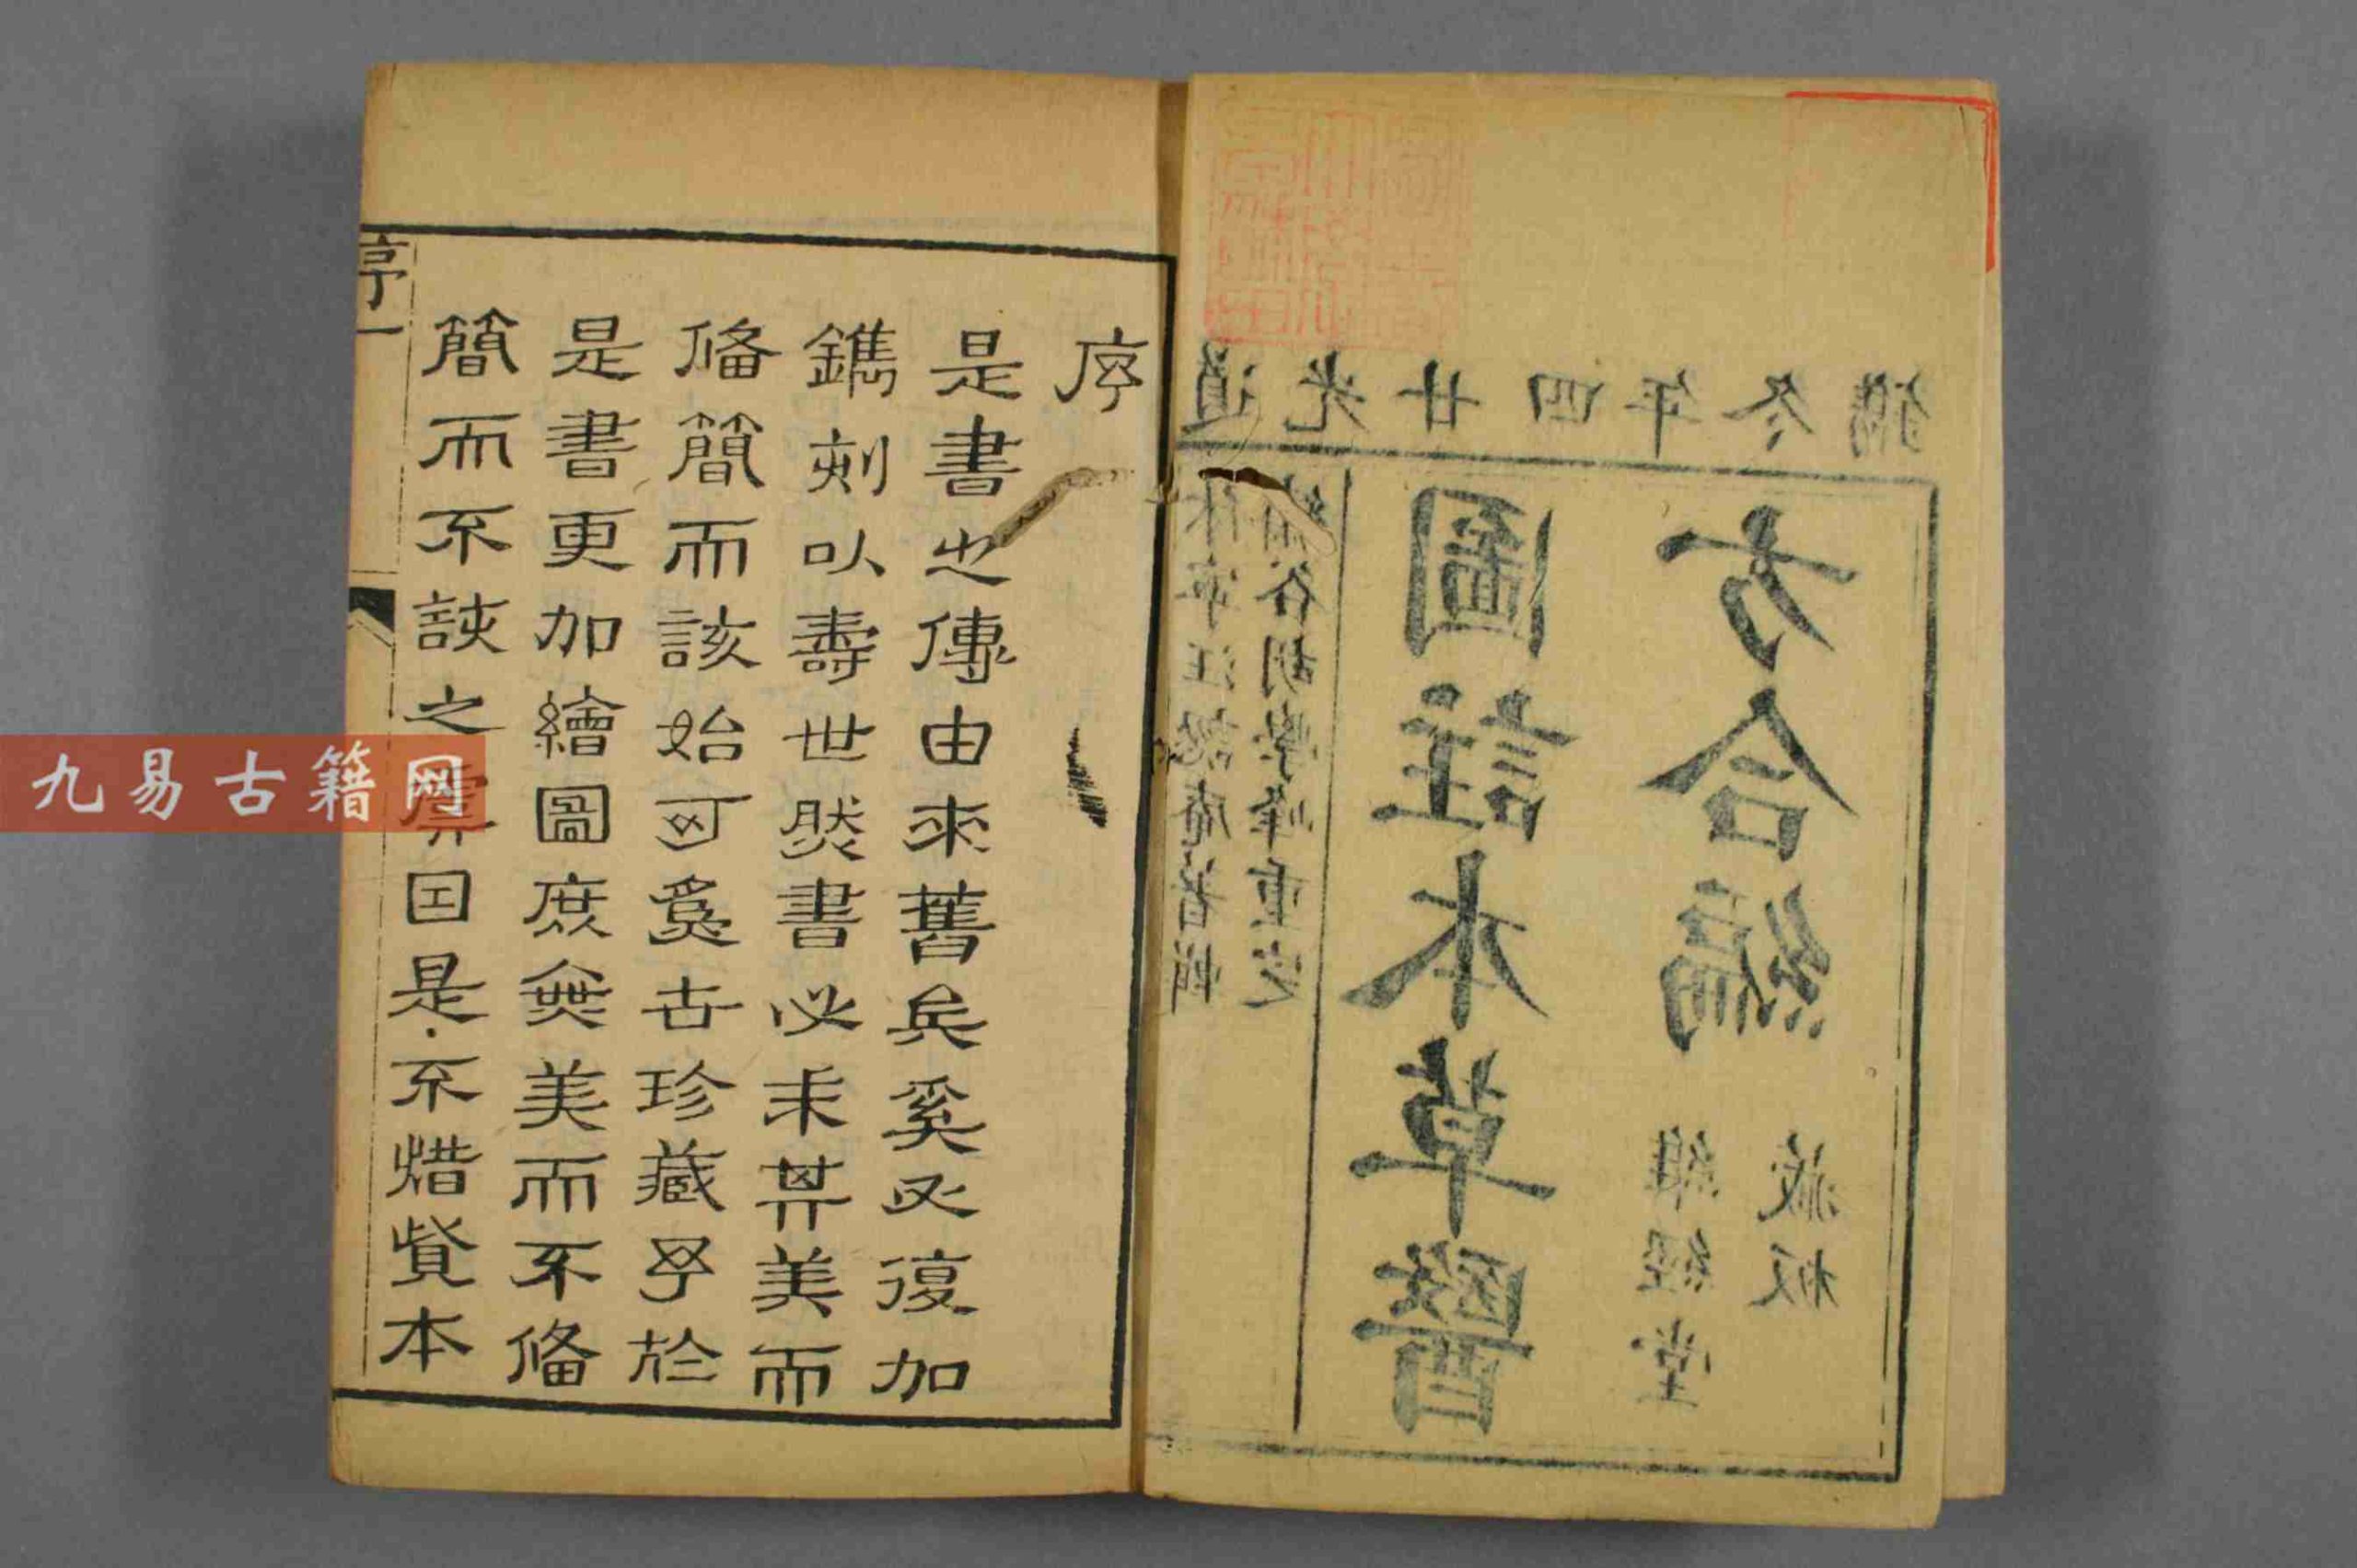 道光廿四年冬鐫
休寧汪訒庵著輯
繡谷胡學峰重定
圖註本草醫
方合編
維經堂
藏板
序
是書之傳由來舊矣奚必復加
鐫刻以壽世然書必求其美而
偹簡而該始可為世珍藏予於
是書更加繪圖庶無美而不偹
簡而不該之虞因是不惜貲本
序一
九易古籍网